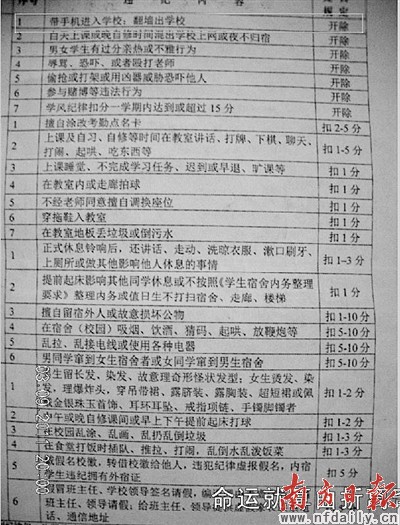 序号 违 纪 内 容
规 定
1 带手机进入学校；翻墙出学校 开除
2 白天上课或晚自修时间混出学校上网或夜不归宿 开除
3 男女学生有过分亲热或不雅行为 开除
4 辱骂、恐吓、或者殴打老师 开除
5 偷抢或打架或用凶器威胁恐吓他人 开除
6 参与赌博等违法行为 开除
7 学风纪律扣分一学期内达到或超过 15 分 开除
1 擅自涂改考勤点名卡 扣 2-5 分
2 上课及自习、自修等时间在教室讲话、打牌、下棋、聊天、
打闹、起哄、吃东西等 扣 1-5 分
3 上课睡堂、不完成学习任务、迟到或早退、旷课等 扣 1 分
4 在教室内或走廊拍球 扣 1 分
5 不经老师同意擅自调换座位 扣 1 分
6 穿拖鞋入教室 扣 1 分
7 在教室地板丢垃圾或倒污水 扣 1 分
1 正式休息铃响后，还讲话、走动、洗晾衣服、漱口刷牙、
上厕所或做其他影响他人休息的事情 扣 1-3 分
2 提前起床影响其他同学休息或不按照《学生宿舍内务整理
要求》整理内务或值日生不打扫宿舍、走廊、楼梯 扣 1 分
3 擅自留宿外人或故意损坏公物 扣 1-10 分
4 在宿舍（校园）吸烟、饮酒、猜码、起哄、放鞭炮等 扣 5-10 分
5 乱拉、乱接电线或使用各种电器 扣 5-10 分
6 男同学窜到女生宿舍者或女同学窜到男生宿舍 扣 5-10 分
1 男生留长发、染发、故意理奇形怪状发型；女生烫发、染
发、理爆炸头、穿吊带裙、露脐装、露胸装、超短裙或佩
金银珠玉首饰、耳环耳坠、戒指项链、手镯脚镯者 扣 1-2 分
2 中午或晚自修课间或早上下午提前起床打球 扣 1-2 分
3 在校园乱涂、乱画、乱扔乱倒垃圾 扣 1-3 分
4 在食堂打饭时插队、推拉、打闹、乱倒水乱泼饭菜 扣 1-3 分
5 或假名校徽、转借校徽给他人、违犯纪律虚报假名，内宿
学生违规拥有外宿证 扣 5 分
6 冒班主任、学校领导签名请假，
班主任、领导请假、给班主任、领导
话、通信地址
命运就
南方日报
www.nfdaily.cn